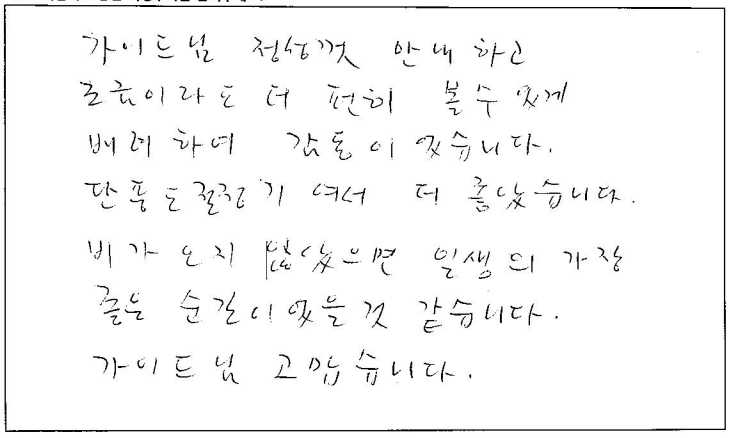 가이드님 정성껏 안내 하고
조금이라도 더 편히 볼수 있게
배려 하여 감동이 있습니다.
단풍도 절정기 여서 더 좋았습니다.
비가 오지 않았으면 일생의 가장
좋은 순간이 였을것 같습니다.
가이드님 고맙습니다.